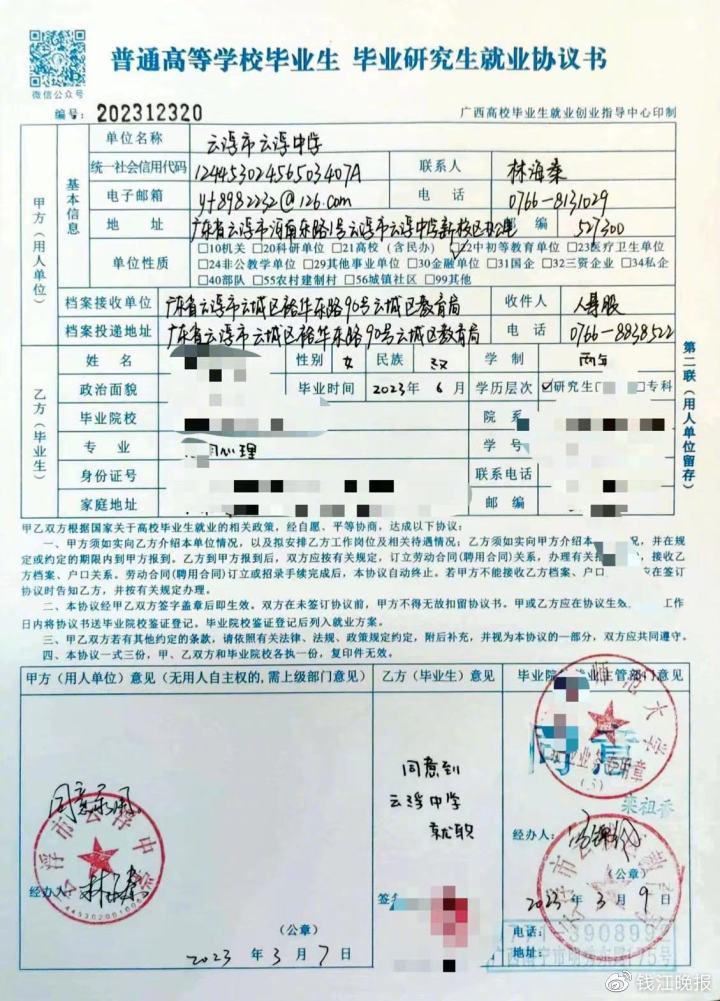 微信公众号
普通高等学校毕业生 毕业研究生就业协议书
编号：202312320
广西高校毕业生就业创业指导中心印制
甲方（用人单位）
基本信息
单位名称 云浮市云浮中学
统一社会信用代码 12445302456503407A 联系人 林海燊
电子邮箱 yf8982232@126.com 电话 0766-8131029
地址 广东省云浮市河南东路1号云浮市云浮中学新校区办公室 邮编 527300
单位性质
□10机关 □20科研单位 □21高校（含民办） ☑22中初等教育单位 □23医疗卫生单位
□24非公教学单位 □29其他事业单位 □30金融单位 □31国企 □32三资企业 □34私企
□40部队 □55农村建制村 □56城镇社区 □99其他
档案接收单位 广东省云浮市云城区裕华东路90号云城区教育局 收件人 人事股
档案投递地址 广东省云浮市云城区裕华东路90号云城区教育局 电话 0766-8838522
乙方（毕业生）
姓名 性别 女 民族 汉 学制 两年
政治面貌 毕业时间 2023年 6月 学历层次 ☑研究生□ □专科
毕业院校 院系
专业 心理 学号
身份证号 联系电话
家庭地址 邮编
第二联（用人单位留存）
甲乙双方根据国家关于高校毕业生就业的相关政策，经自愿、平等协商，达成以下协议：
一、甲方须如实向乙方介绍本单位情况，以及拟安排乙方工作岗位及相关待遇情况；乙方须如实向甲方介绍本 况，并在规
定或约定的期限内到甲方报到。乙方到甲方报到后，双方应按有关规定，订立劳动合同(聘用合同)关系，办理有关 ，接收乙
方档案、户口关系。劳动合同(聘用合同)订立或招录手续完成后，本协议自动终止。若甲方不能接收乙方档案、户口 应在签订
协议时告知乙方，并按有关规定办理。
二、本协议经甲乙双方签字盖章后即生效。双方在未签订协议前，甲方不得无故扣留协议书。甲或乙方应在协议生效 工作
日内将协议书送毕业院校鉴证登记。毕业院校鉴证登记后列入就业方案。
三、甲乙方若有其他约定的条款，请依照有关法律、法规、政策规定约定，附后补充，并视为本协议的一部分，双方应共同遵守。
四、本协议一式三份，甲、乙方和毕业院校各执一份，复印件无效。
甲方（用人单位）意见（无用人自主权的，需上级部门意见） 乙方（毕业生）意见 毕业院 业主管部门意见
同意录用
云浮市云浮中学
经办人：
（公章）
2023 年 3 月 7 日
同意到
云浮中学
就职
签
师范大学
业业务专用章
(3)
同意
经办人：
（公章）
2023 年 3 月 9 日
电话： 3908992
地址：
钱江晚报